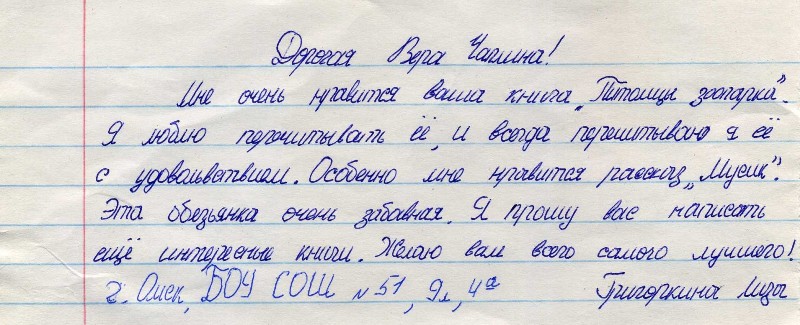 Дорогая Вера Чаплина!
Мне очень нравится ваша книга „Питомцы зоопарка".
Я люблю перечитывать её, и всегда перечитываю я её
с удовольствием. Особенно мне нравится рассказ „Мусик".
Эта обезьянка очень забавная. Я прошу вас написать
ещё интересные книги. Желаю вам всего самого лучшего!
г. Омск, БОУ СОШ №51, 9л, 4а Григоркина Лиза